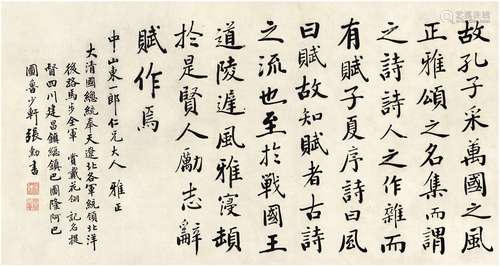 故孔子采萬國之風
正雅頌之名集而謂
之詩詩人之作雜而
有賦子夏序詩曰風
曰賦故知賦者古詩
之流也至於戰國王
道陵遲風雅寖頓
於是賢人勵志辭
賦作焉
中山東一郎仁兄大人 雅正
大清國總統奉天遼北各軍統領北洋
後路馬步全軍 賞戴花翎 記名提
督四川建昌鎮總鎮巴圖隆阿巴
圖魯少軒張勳書